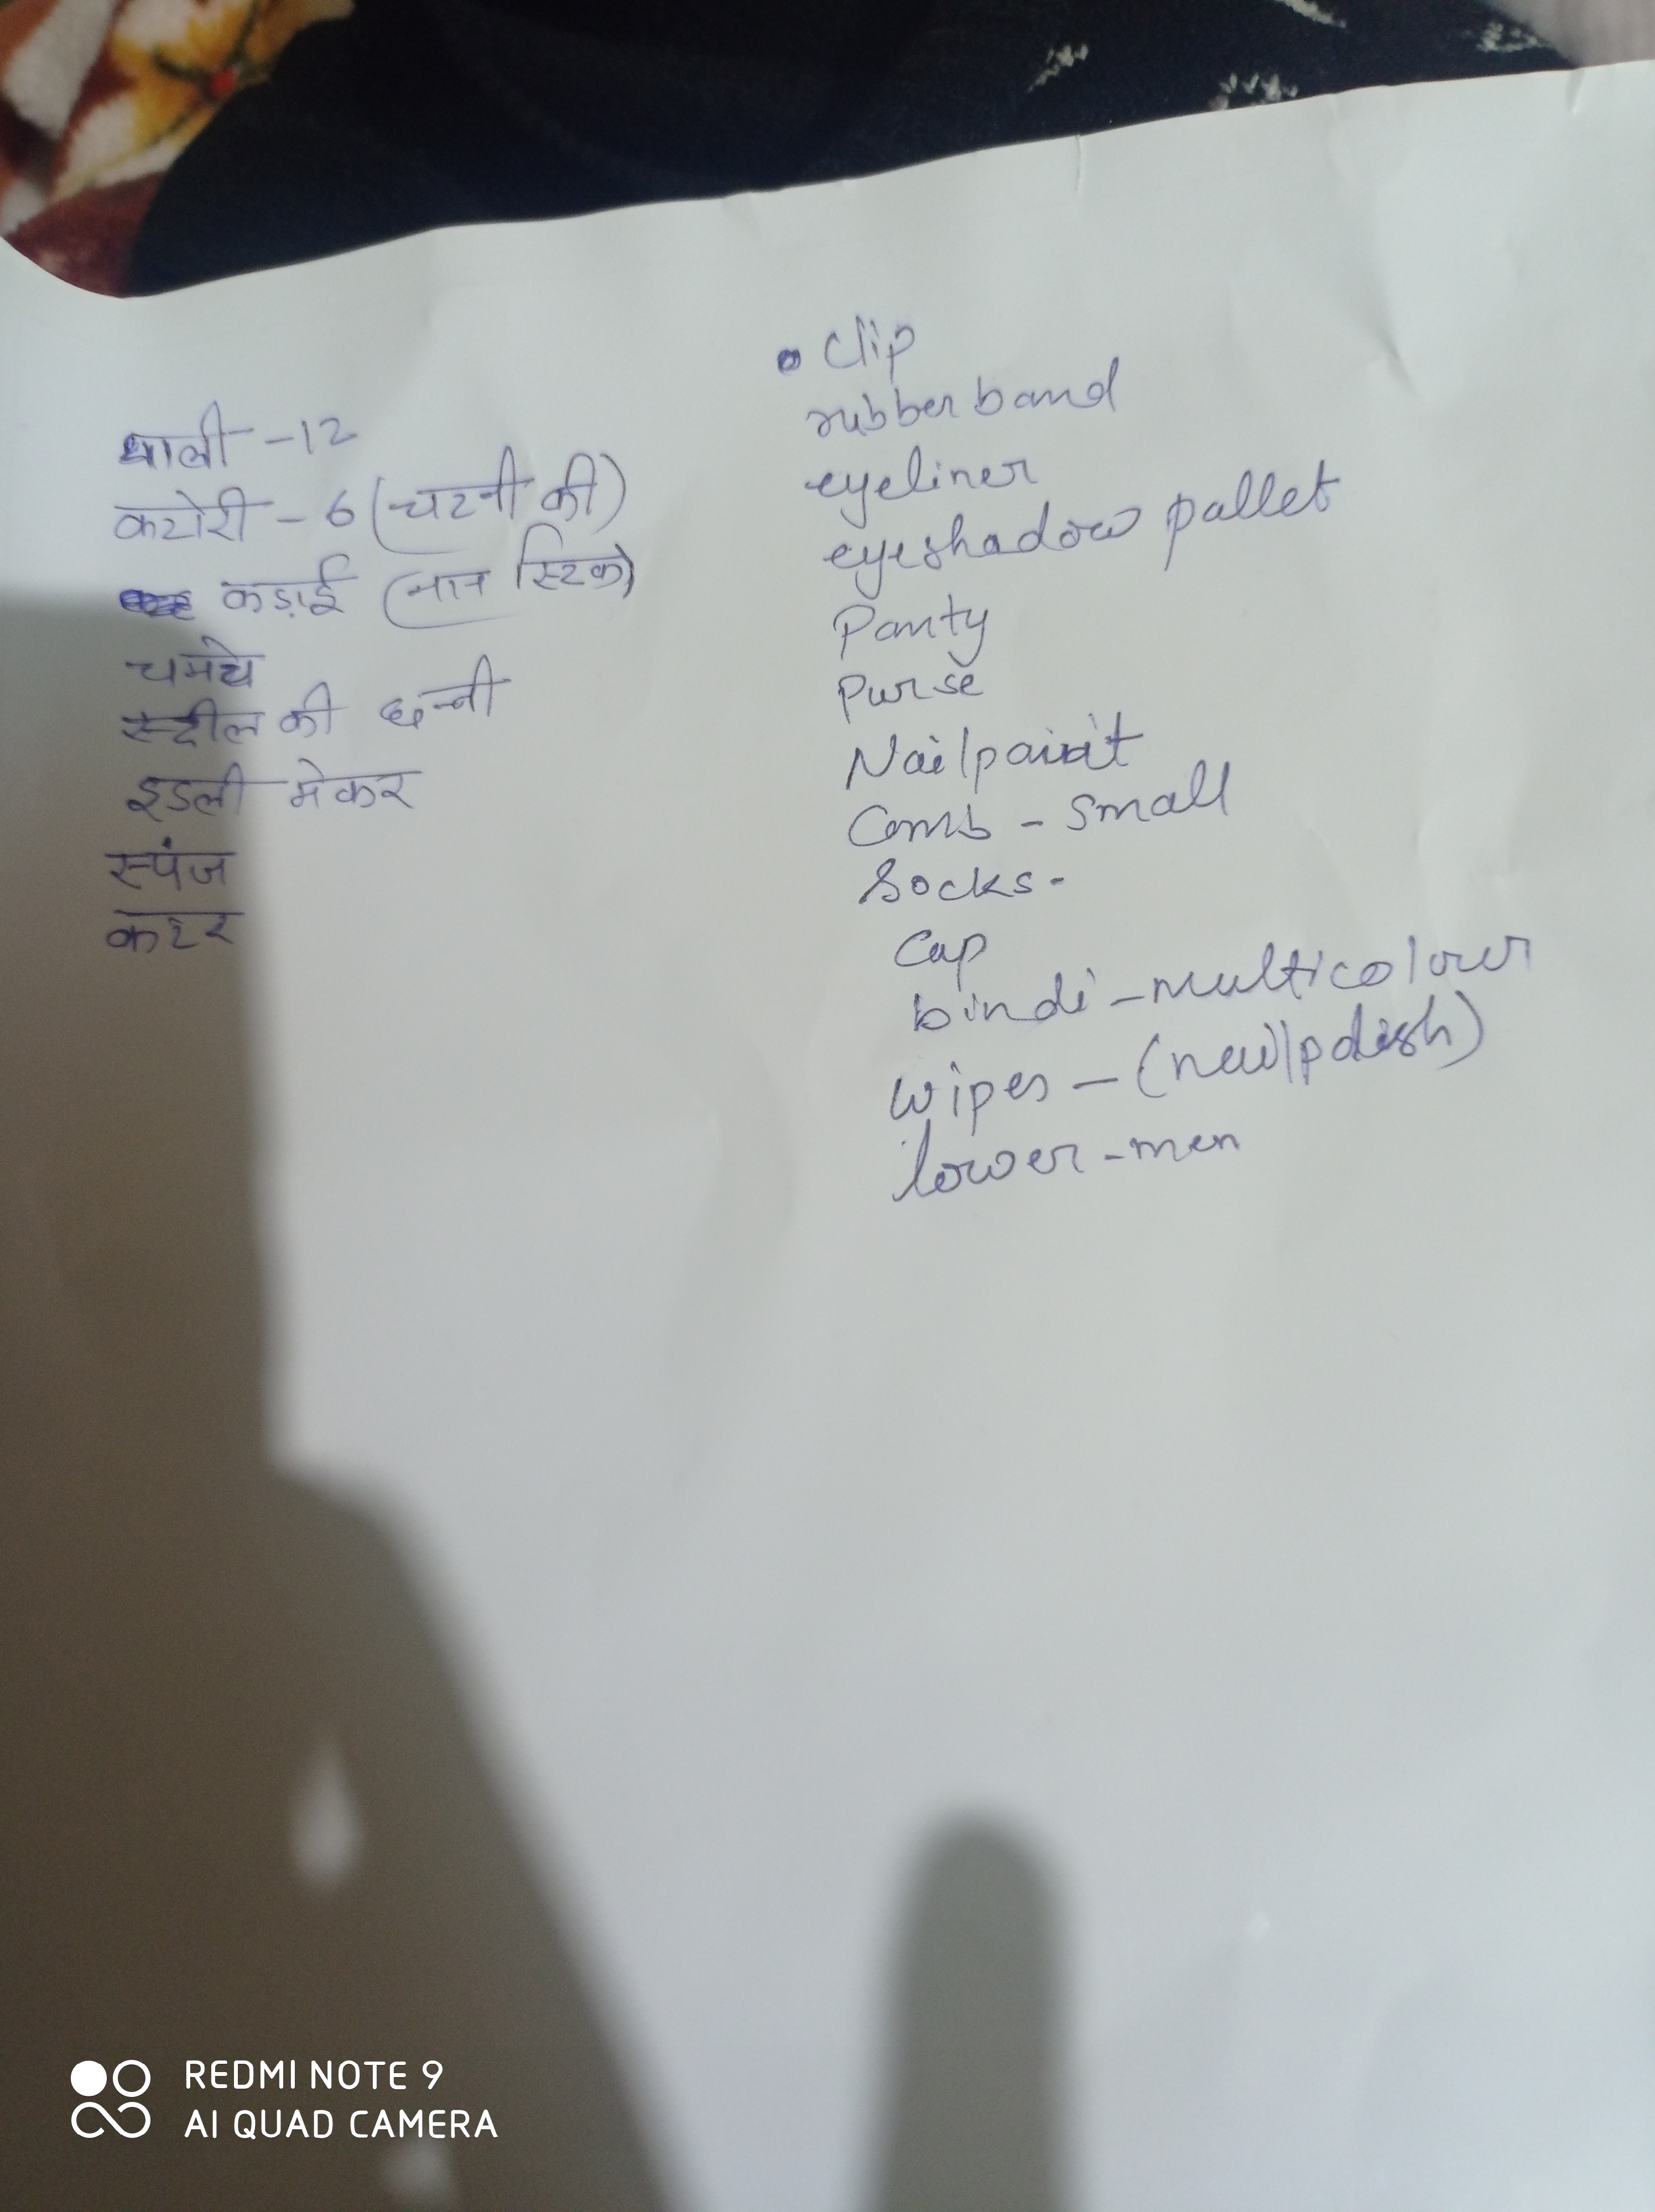 थाली - 12
कटोरी - 6 (चटनी की)
कड़ाई (नान स्टिक)
चमचे
स्टील की छन्नी
इडली मेकर
स्पंज
कटर
• Clip
rubber band
eyeliner
eyeshadow pallet
Panty
Purse
Nailpaint
Comb - small
Socks -
Cap
bindi - multicolour
wipes - (nailpolish)
lower - men
REDMI NOTE 9
AI QUAD CAMERA